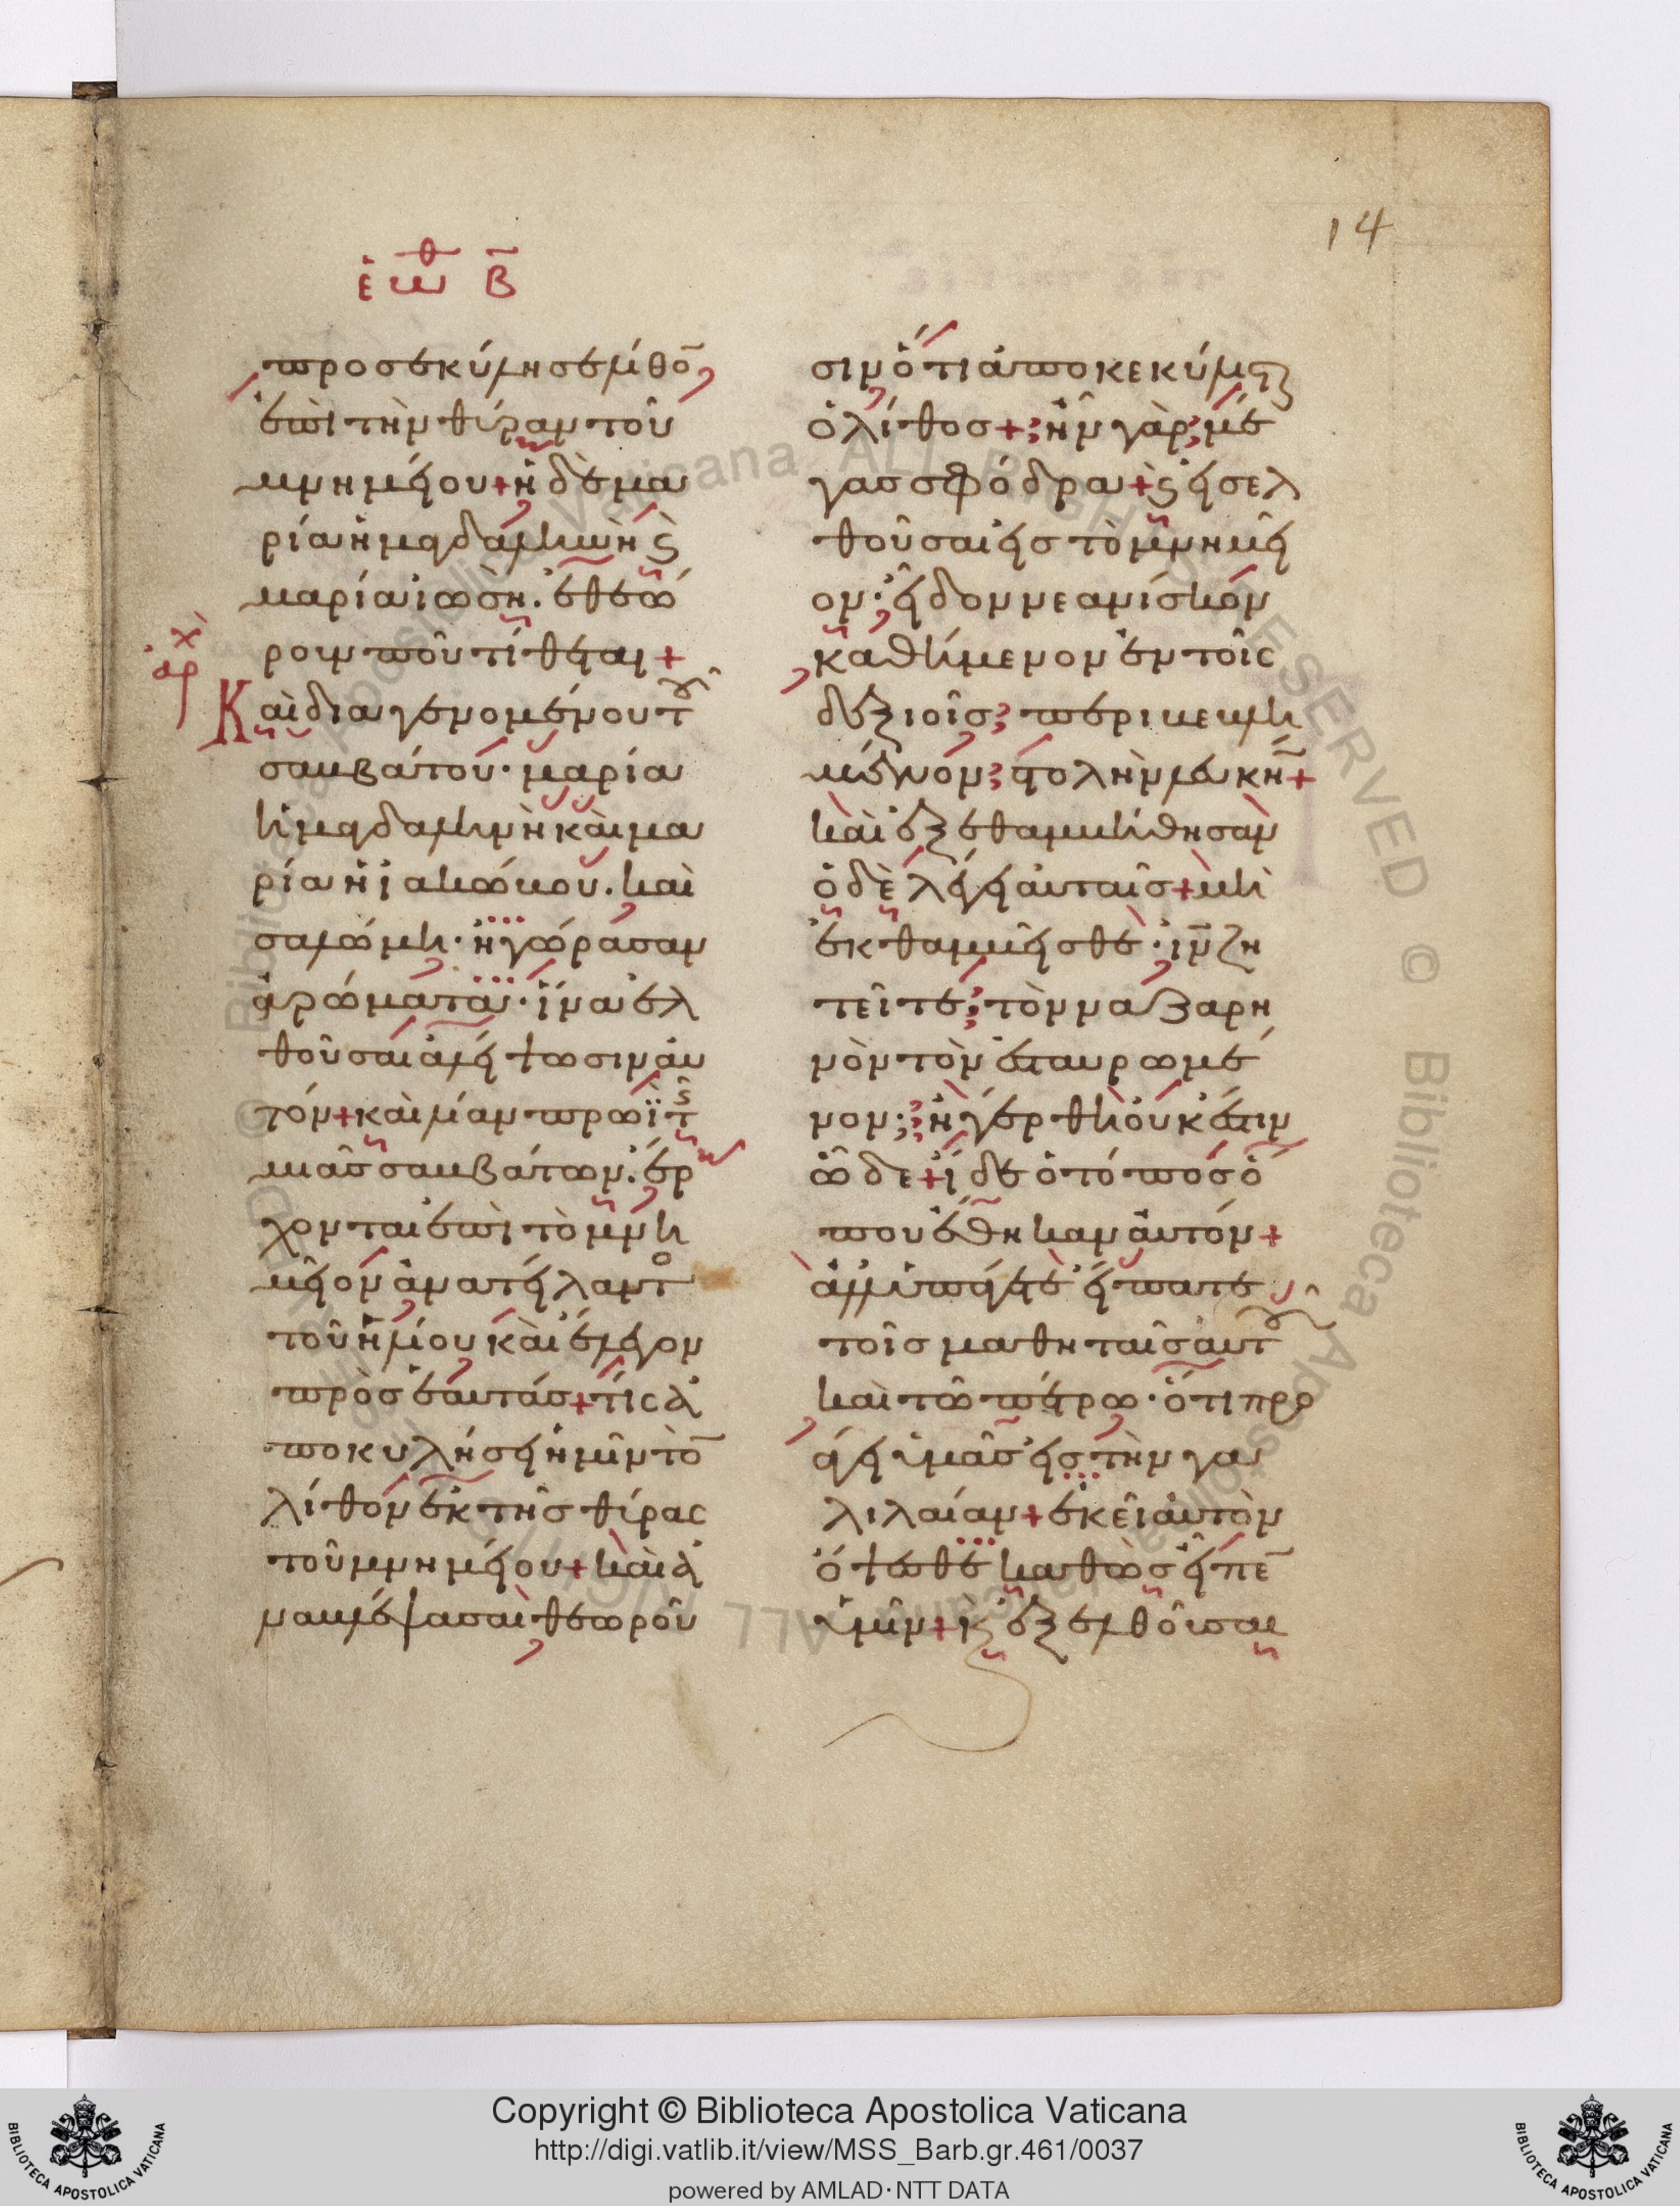 14
ἑωθ Β
προσεκύλησεν λίθο̄
ἐπὶ τὴν θύραν τοῦ
μνημείου + ἡ δὲ μα
ρία ἡ μαγδαλινὴ ϗ
μαρία ἰωσὴ. ἐθεώ
ρουν ποῦ τίθεται +
ἀρχ
Καὶ διαγενομένου τ
σαμβάτου· μαρία
ἡ μαγδαληνὴ καὶ μα
ρία ἡ ἰακώβου. καὶ
σαλώμη· ἠγώρασαν
ἀρώματα· ἵνα ἐλ
θοῦσαι ἀλείψωσιν αὐ
τόν + καὶ λίαν πρωῒ τ
μιᾶς σαμβάτων. ἔρ
χονται ἐπὶ τὸ μνη
μεῖον ἀνατείλαντο
τοῦ ἡλίου καὶ ἔλεγον
πρὸς ἑαυτάς + τίς ἀ
ποκυλήσει ἡμῖν τὸ̄
λίθον ἐκ τῆς θύρας
τοῦ μνημείου + καὶ ἀ
ναβλέψασαι θεωροῦ
σιν ὅτι ἀποκεκύλισ
ὁ λίθος + ἦν γὰρ μέ
γας σφόδρα + ϗ εἰσελ
θοῦσαι εἰς τὸ μνημεῖ
ον· εἶδον νεανίσκον
καθήμενον ἐν τοῖς
δεξιοῖς περιβεβλη
μένον στολὴν λευκὴ̄ +
καὶ ἐξεθαμβήθησαν
ὁ δὲ λέγει αὐταῖς + μὴ
ἐκθαμβεῖσθε· ἰν̄ ζη
τεῖτε τὸν ναζαρη
νὸν τὸν ἐσταυρωμέ
νον· ἠγέρθη οὐκ ἔστιν
ὧδε + ἴδε ὁ τόπος ὅ
που ἔθηκαν αὐτόν +
ἀλλ' ὑπάγετε εἴπατε
τοῖς μαθηταῖς αὐτ
καὶ τῶ πέτρω· ὅτι προ
άγει ὑμᾶς εἰς τὴν γα
λιλαίαν + ἐκεῖ αὐτὸν
ὄψεσθε καθὼς εἶπε̄
ὑμῖν + ϗ ἐξελθοῦσαι
Copyright © Biblioteca Apostolica Vaticana
http://digi.vatlib.it/view/MSS_Barb.gr.461/0037
powered by AMLAD·NTT DATA
BIBLIOTECA APOSTOLICA VATICANA
BIBLIOTECA APOSTOLICA VATICANA